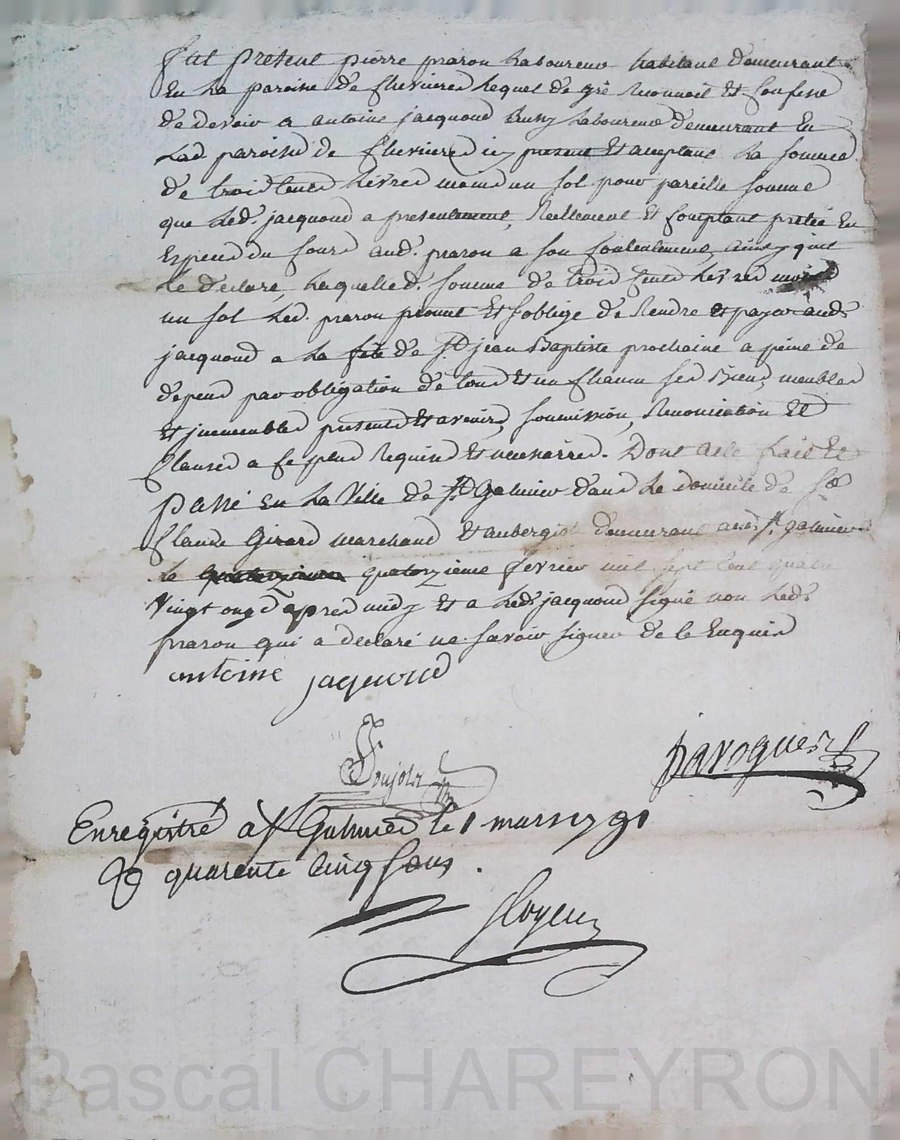 fut present pierre praron Laboureur habitant demeurant
En La paroisse de Chevrieres Lequel de gré Reconnoit Et Confesse
de devoir a antoine jacquond Laboureur demeurant En
Lad paroisse de Chevrieres icy present Et acceptant La somme
de trois Cents Livres moins un sol pour pareille somme
que Led. jacquond a presentement, Réellement Et Comptant prêtée En
Especes du Cours aud. praron a son Contentement, ainsy qu'il
Le déclare, Laquelle d. somme de trois Cents Livres moins
un sol Led. praron promet Et s'oblige de Rendre Et payer aud.
jacquond a La fête de St jean Baptiste prochaine a peine de
depens par obligation de tous Et un Chacun ses Biens, meubles
Et immeubles presents Et avenir, soumission, Renonciation Et
Clauses a Ce plus Requises Et necessaires. Dont acte fait Et
passé En La Ville de St Galmier dans Le domicile de Sr
Claude Girard marchand Et aubergiste demeurant aud. St galmier
le quatorzieme quatorzieme fevrier mil sept Cent quatre
Vingt onze apres midy Et a Led. jacquond signé non Led.
praron qui a déclaré ne savoir signer de ce Enquis
antoine jaquond
Enregistré à St Galmier le 1 mars 1791
quarente Cinq sous.